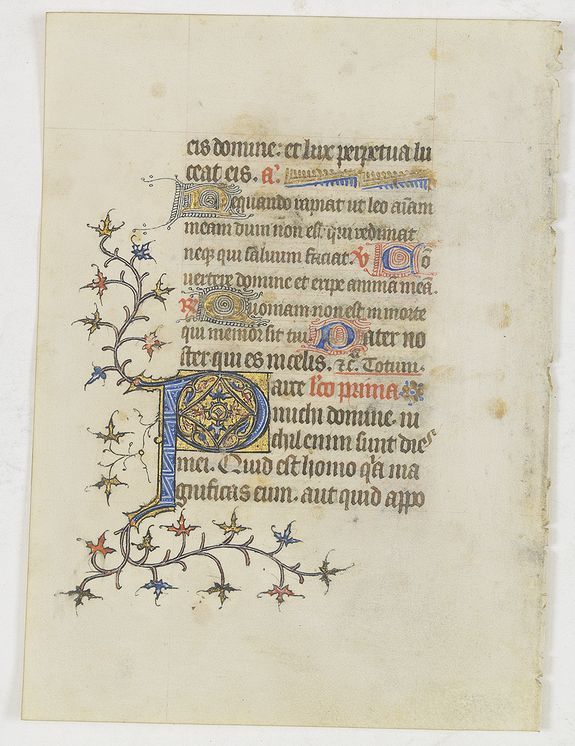 eis domine: et lux perpetua lu
ceat eis. a.
Nequando rapiat ut leo aīam
meam dum non est qui redimat
neqȝ qui saluum faciat. v Cō
uertere domine et eripe animā meā.
R Quoniam non est in morte
qui memor sit tui. Pater no
ster qui es in celis. Totum.
Parce lco prima
michi domine. ni
chil enim sunt dies
mei. Quid est homo qͥa ma
gnificas eum. aut quid appo